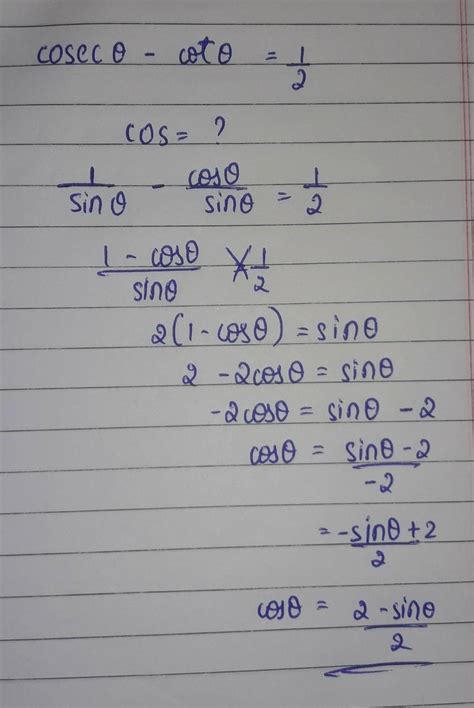 cosec θ - cot θ = 1/2
cos = ?
1/sin θ - cosθ/sinθ = 1/2
1 - cosθ/sinθ X 1/2
2(1 - cosθ) = sinθ
2 - 2cosθ = sinθ
-2cosθ = sinθ - 2
cosθ = sinθ - 2/-2
= -sinθ + 2/2
cosθ = 2 - sinθ/2